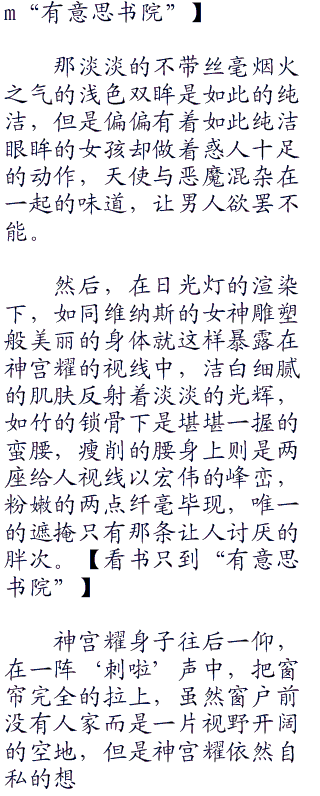 m“有意思书院”】
那淡淡的不带丝毫烟火
之气的浅色双眸是如此的纯
洁，但是偏偏有着如此纯洁
眼眸的女孩却做着惑人十足
的动作，天使与恶魔混杂在
一起的味道，让男人欲罢不
能。
然后，在日光灯的渲染
下，如同维纳斯的女神雕塑
般美丽的身体就这样暴露在
神宫耀的视线中，洁白细腻
的肌肤反射着淡淡的光辉，
如竹的锁骨下是堪堪一握的
蛮腰，瘦削的腰身上则是两
座给人视线以宏伟的峰峦，
粉嫩的两点纤毫毕现，唯一
的遮掩只有那条让人讨厌的
胖次。【看书只到“有意思
书院”】
神宫耀身子往后一仰，
在一阵‘刺啦’声中，把窗
帘完全的拉上，虽然窗户前
没有人家而是一片视野开阔
的空地，但是神宫耀依然自
私的想